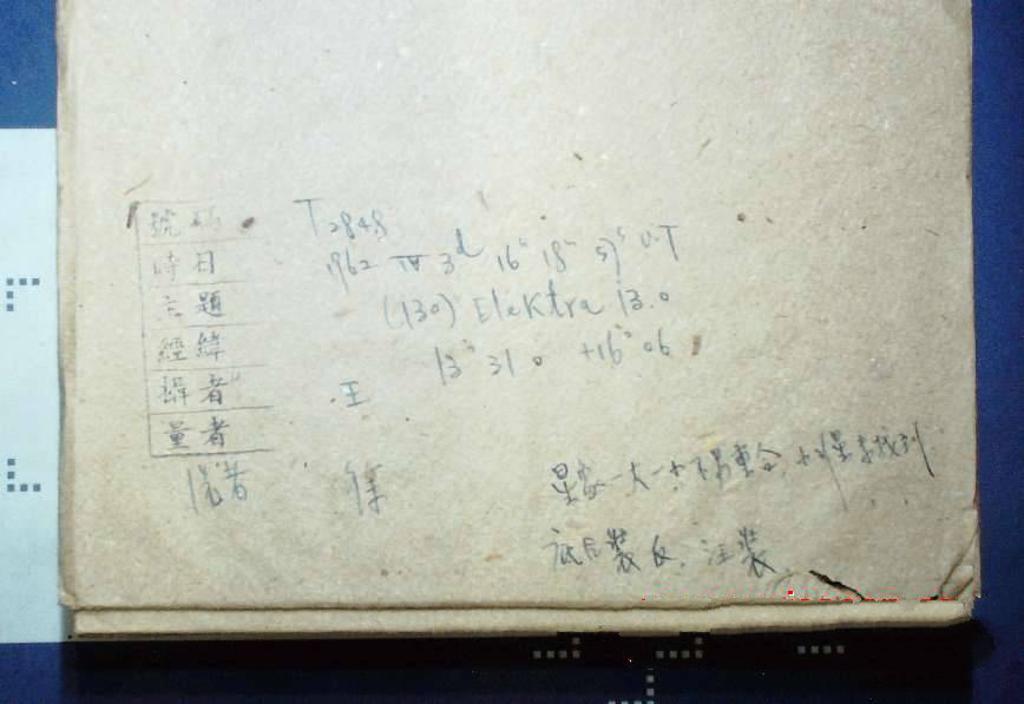 號碼 T2848
時日 1962 IV 3d 16h 18m 59s U.T
主題 (130) Elektra 13.0
經緯 13h 31.0 +16° 06
攝者 王
量者
徐
星象一大一小不易重合,小行星未找到
底片裝反. 注裝